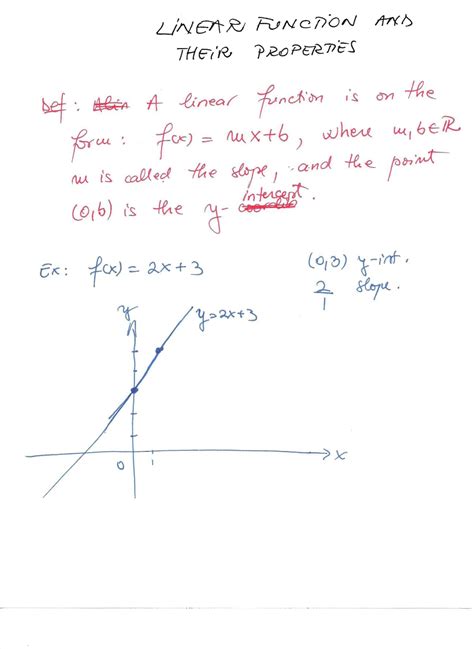 LINEAR FUNCTION AND
THEIR PROPERTIES
Def: A linear function is on the
form: f(x) = mx+b, where m,b∈ℝ
m is called the slope, and the point
(0,b) is the y-intercept.
Ex: f(x) = 2x+3
(0,3) y-int.
2/1 slope.
y
y=2x+3
0
1
x